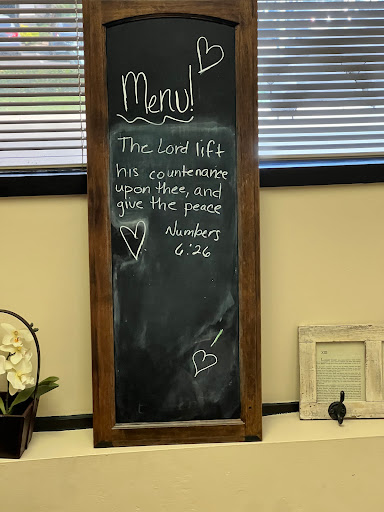 Menu!
The Lord lift
his countenance
upon thee, and
give the peace
Numbers
6:26